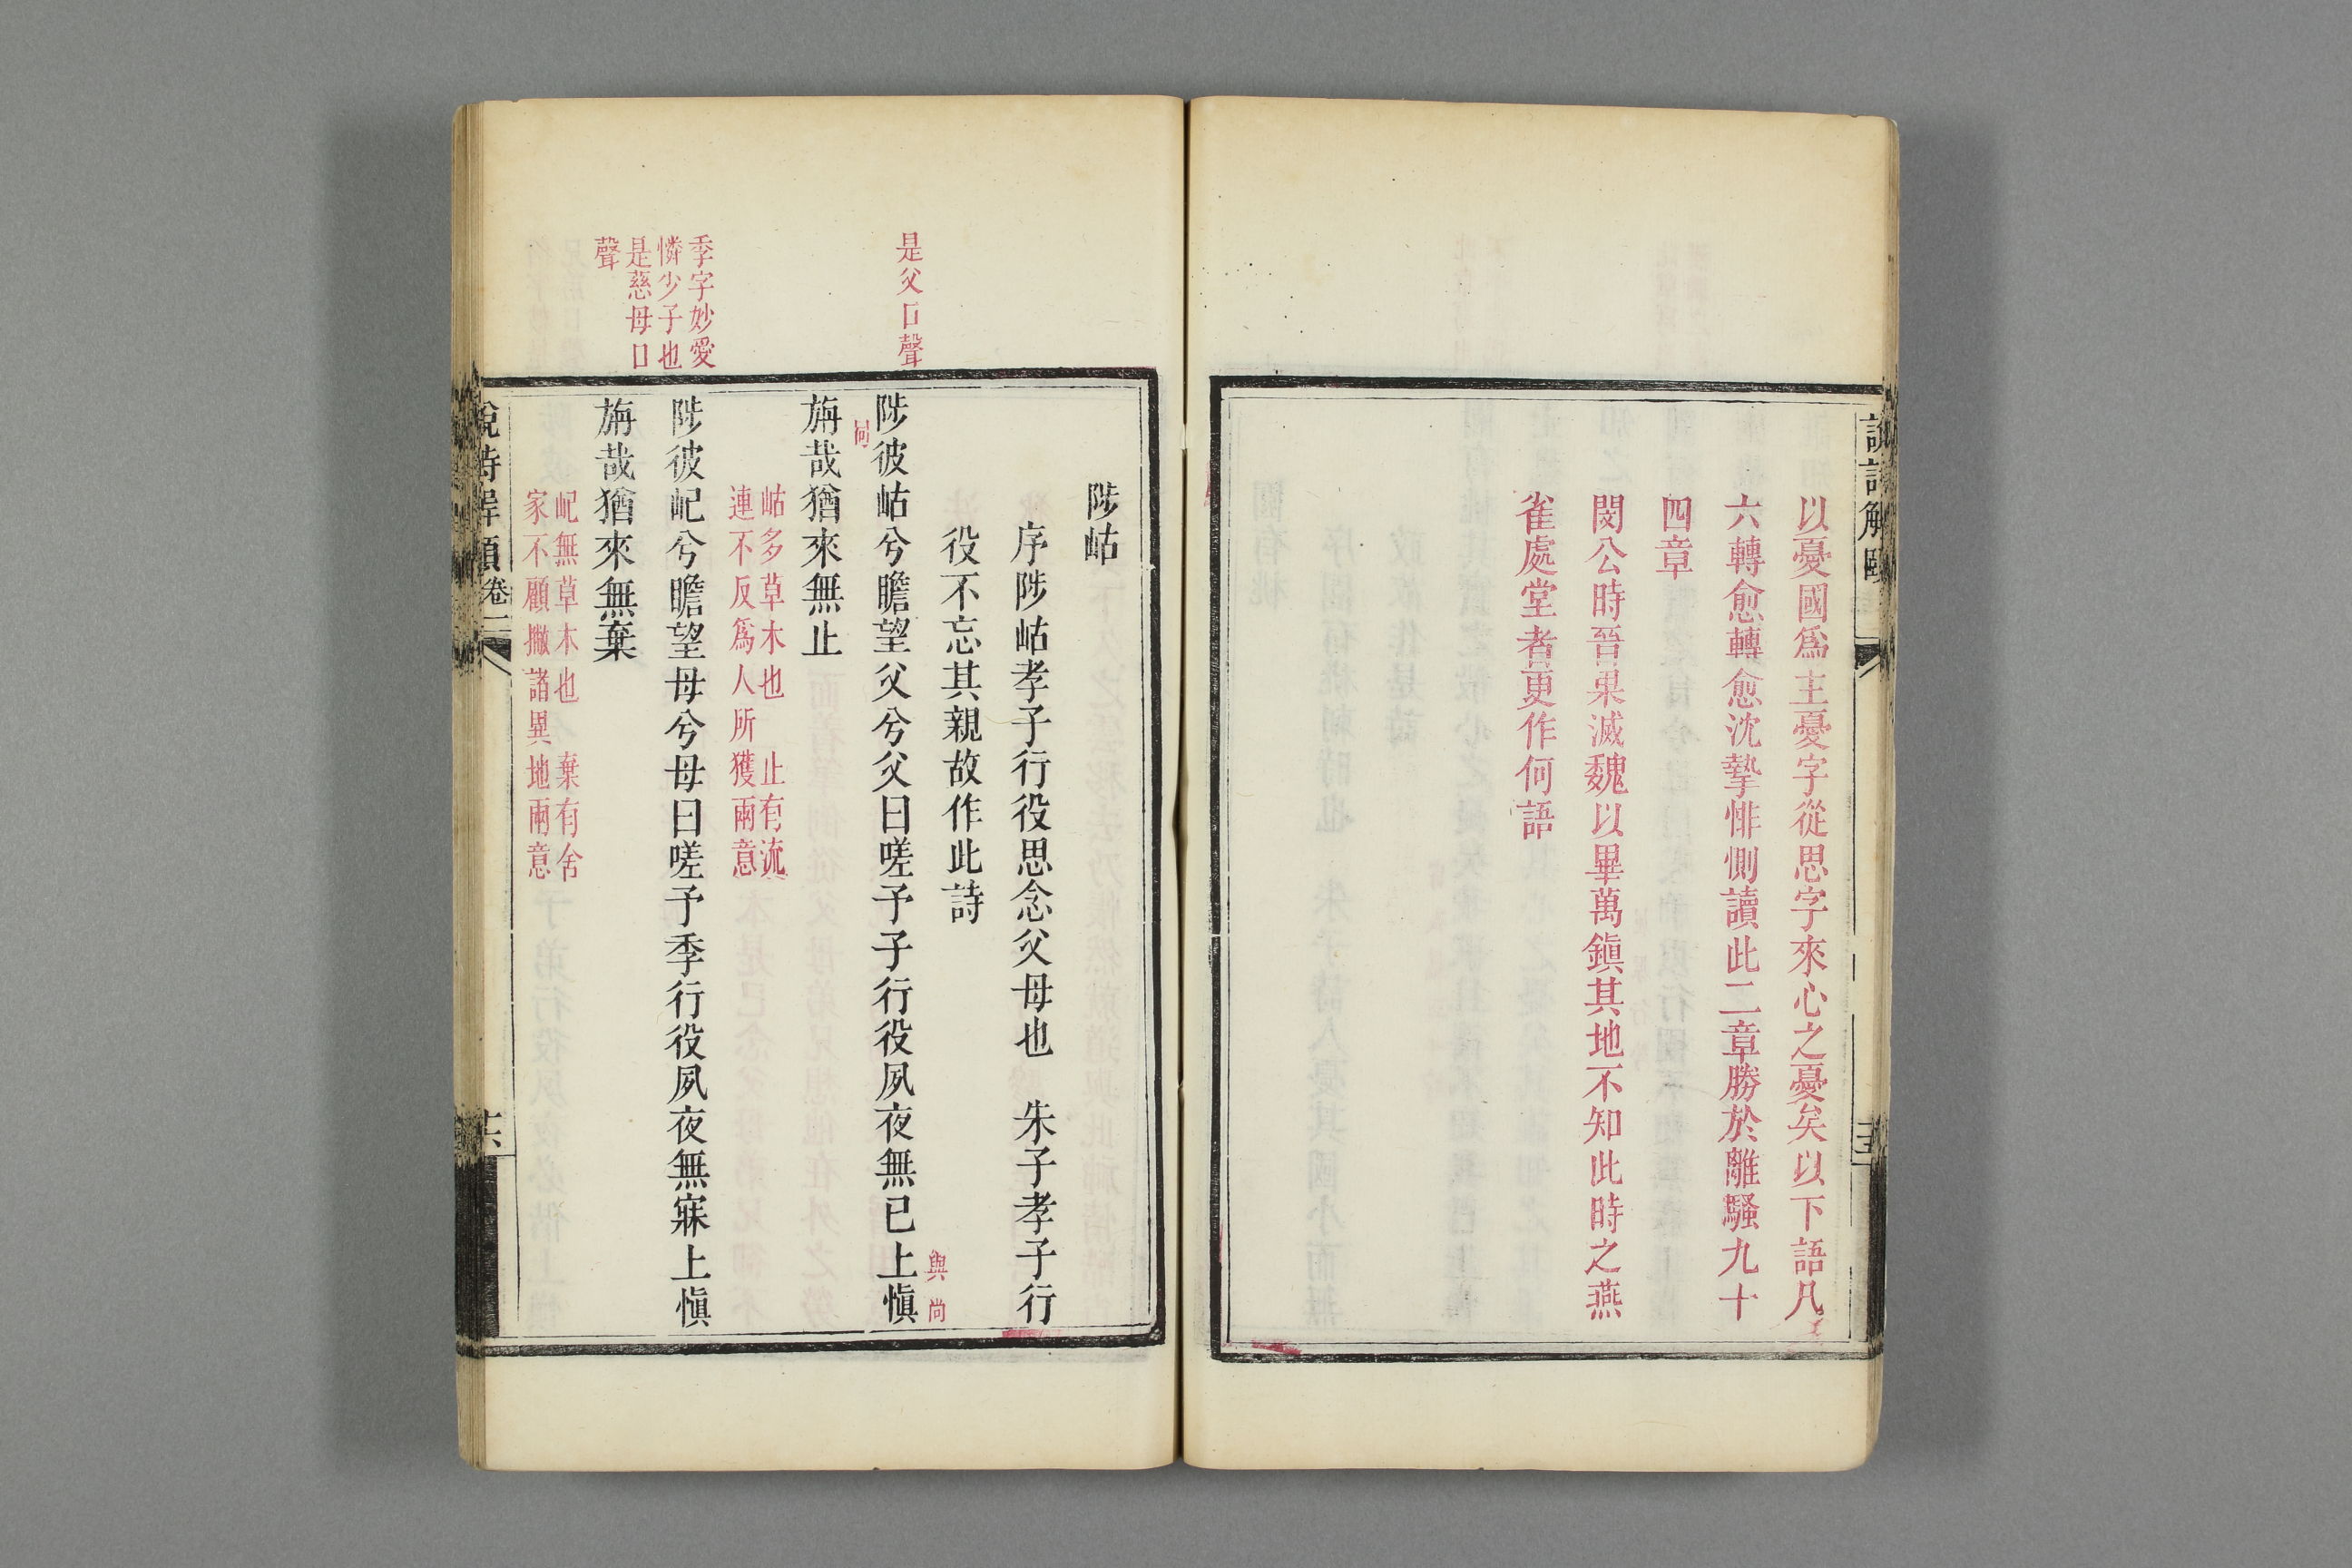 說詩解頤
以憂國爲主憂字從思字來心之憂矣以下語凡
六轉愈轉愈沈摯悱惻讀此二章勝於離騷九十
四章
閔公時晉果滅魏以畢萬鎭其地不知此時之燕
雀處堂者更作何語
陟岵
序陟岵孝子行役思念父母也　朱子孝子行
役不忘其親故作此詩
是父口聲
與尚
陟彼岵兮瞻望父兮父曰嗟予子行役夙夜無已上愼
旃哉猶來無止
岵多草木也　止有流
連不反爲人所獲兩意
季字妙愛
憐少子也
是慈母口
聲
陟彼屺兮瞻望母兮母曰嗟予季行役夙夜無寐上愼
旃哉猶來無棄
屺無草木也　棄有舍
家不顧撇諸異地兩意
說詩解頤卷二
十六